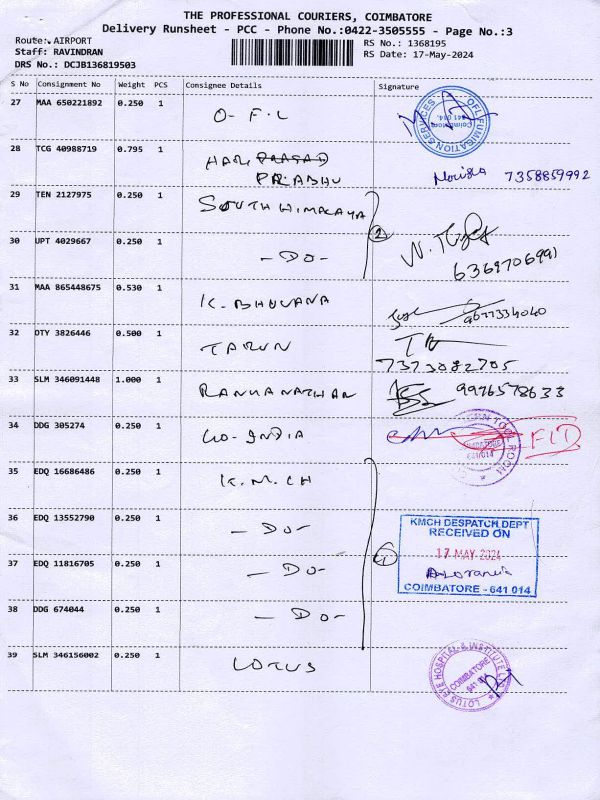 THE PROFESSIONAL COURIERS, COIMBATORE
Delivery Runsheet - PCC - Phone No.:0422-3505555 - Page No.:3
Route: AIRPORT
Staff: RAVINDRAN
DRS No.: DCJB136819503
RS No.: 1368195
RS Date: 17-May-2024
S No Consignment No Weight PCS Consignee Details Signature
27 MAA 650221892 0.250 1 O-F.L
OFL FUMIGATION SERVICES
Coimbatore
641 014.
28 TCG 40988719 0.795 1 HARI PRASAD
PRABHU
7358859992
29 TEN 2127975 0.250 1 SOUTH HIMALAYA
2
30 UPT 4029667 0.250 1 - DO -
6369706991
31 MAA 865448675 0.530 1 K. BHUVANA
9677334040
32 DTY 3826446 0.500 1 TARUN
7373082705
33 SLM 346091448 1.000 1 RANGANATHAN
9976578633
34 DDG 305274 0.250 1 GO-INDIA
641 014
35 EDQ 16686486 0.250 1 K.M.CH
36 EDQ 13552790 0.250 1 - DO -
37 EDQ 11816705 0.250 1 - DO -
4
38 DDG 674044 0.250 1 - DO -
KMCH DESPATCH DEPT
RECEIVED ON
17 MAY 2024
COIMBATORE - 641 014
39 SLM 346156002 0.250 1 LOTUS
LOTUS EYE HOSPITAL & INSTITUTE LTD
COIMBATORE
641 014